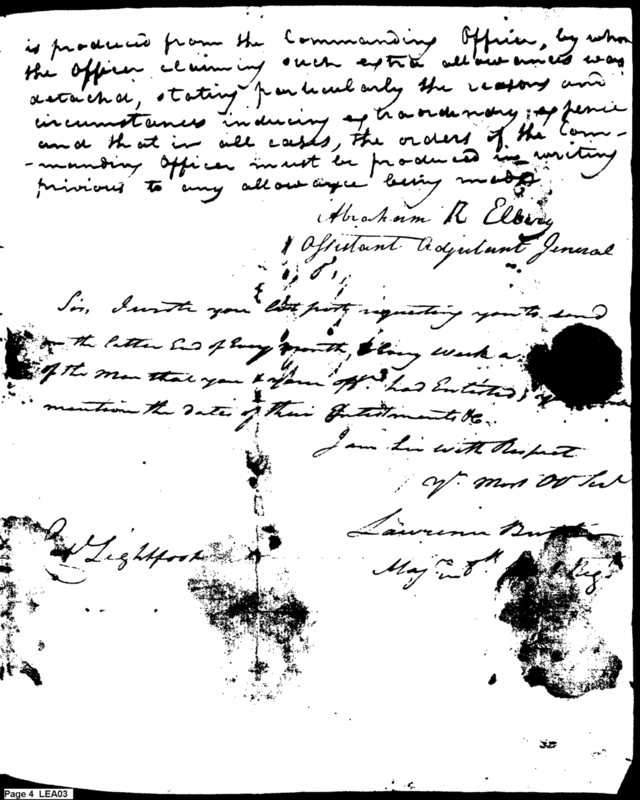 is produced from the Commanding Officer, by whom
the Officer claiming such extra allowances was
detachd, stating particularly the reasons and
circumstances inducing extraordinary expence
and that in all cases, the orders of the Com-
-manding Officer must be produced in writing
privious to any allowance being made
Abraham R Ellery
Assistant Adjutant General
Sir, I wrote you last post requesting you to send
on the latter End of Every month, & Every Week a
of the Men that you & your offrs had Enlisted,
mention the dates of their Inlistments &c.
I am Sir with Respect
Yr Most Ob Servt
Lawrence Butler
Majr 8th Regt
Lightfoot
Page 4 LEA03